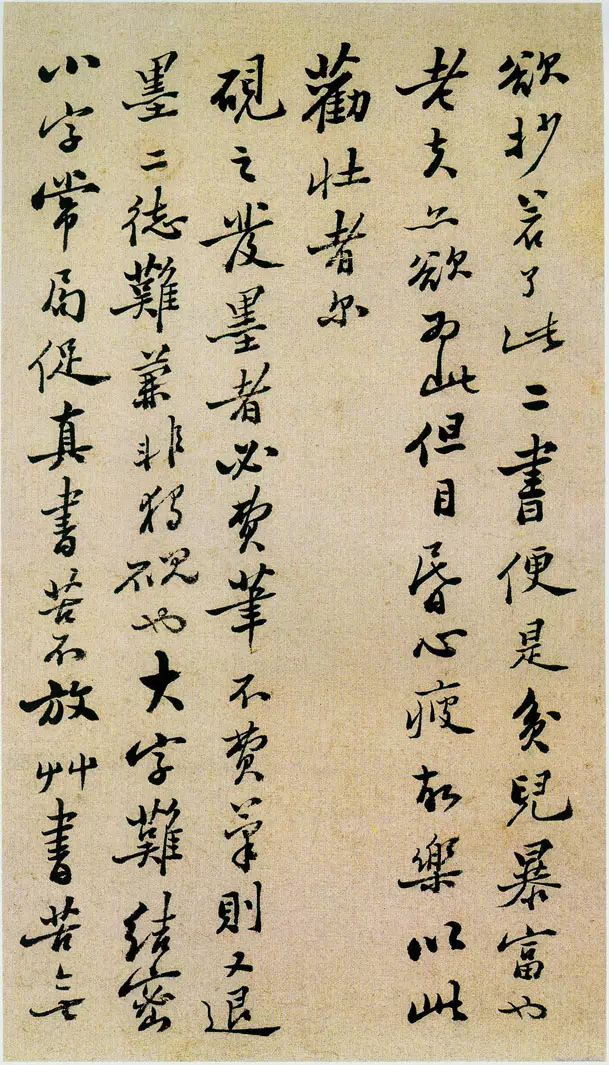 欲抄若了此二書便是貧兒暴富也
老夫亦欲為此但目昏心疲故樂以此
勸壯者爾
硯之發墨者必費筆不費筆則又退
墨二德難兼非獨硯也大字難結密
小字常局促真書苦不放艸書苦無